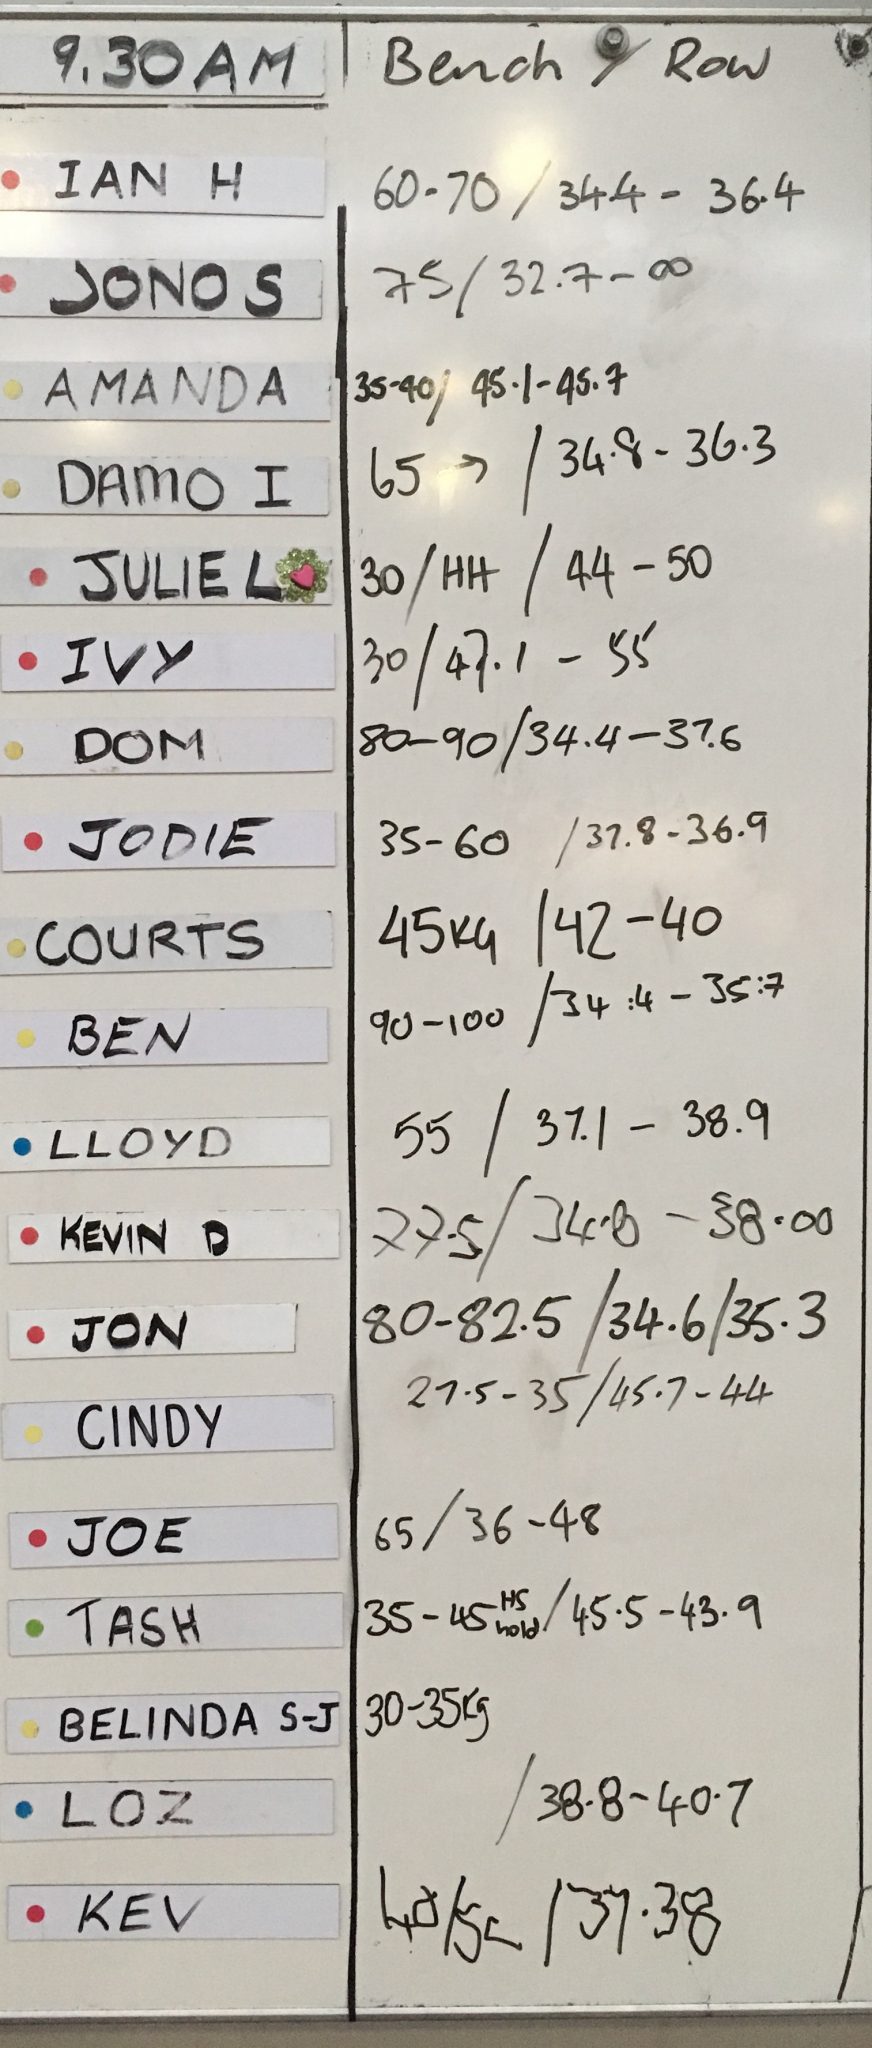 9.30AM Bench / Row
IAN H 60-70 / 34.4 - 36.4
JONO S 75 / 32.7 - ∞
AMANDA 35-40 / 45.1-45.7
DAMO I 65 → / 34.8 - 36.3
JULIE L 30 / HH / 44 - 50
IVY 30 / 47.1 - 55
DOM 80-90 / 34.4-37.6
JODIE 35-60 / 37.8-36.9
COURTS 45KG / 42-40
BEN 90-100 / 34:4 - 35:7
LLOYD 55 / 37.1 - 38.9
KEVIN D 77.5 / 34.8 - 38.00
JON 80-82.5 / 34.6 / 35.3
CINDY 27.5-35 / 45.7-44
JOE 65 / 36-48
TASH 35-45 HS hold / 45.5-43.9
BELINDA S-J 30-35kg
LOZ / 38.8-40.7
KEV / 37.38